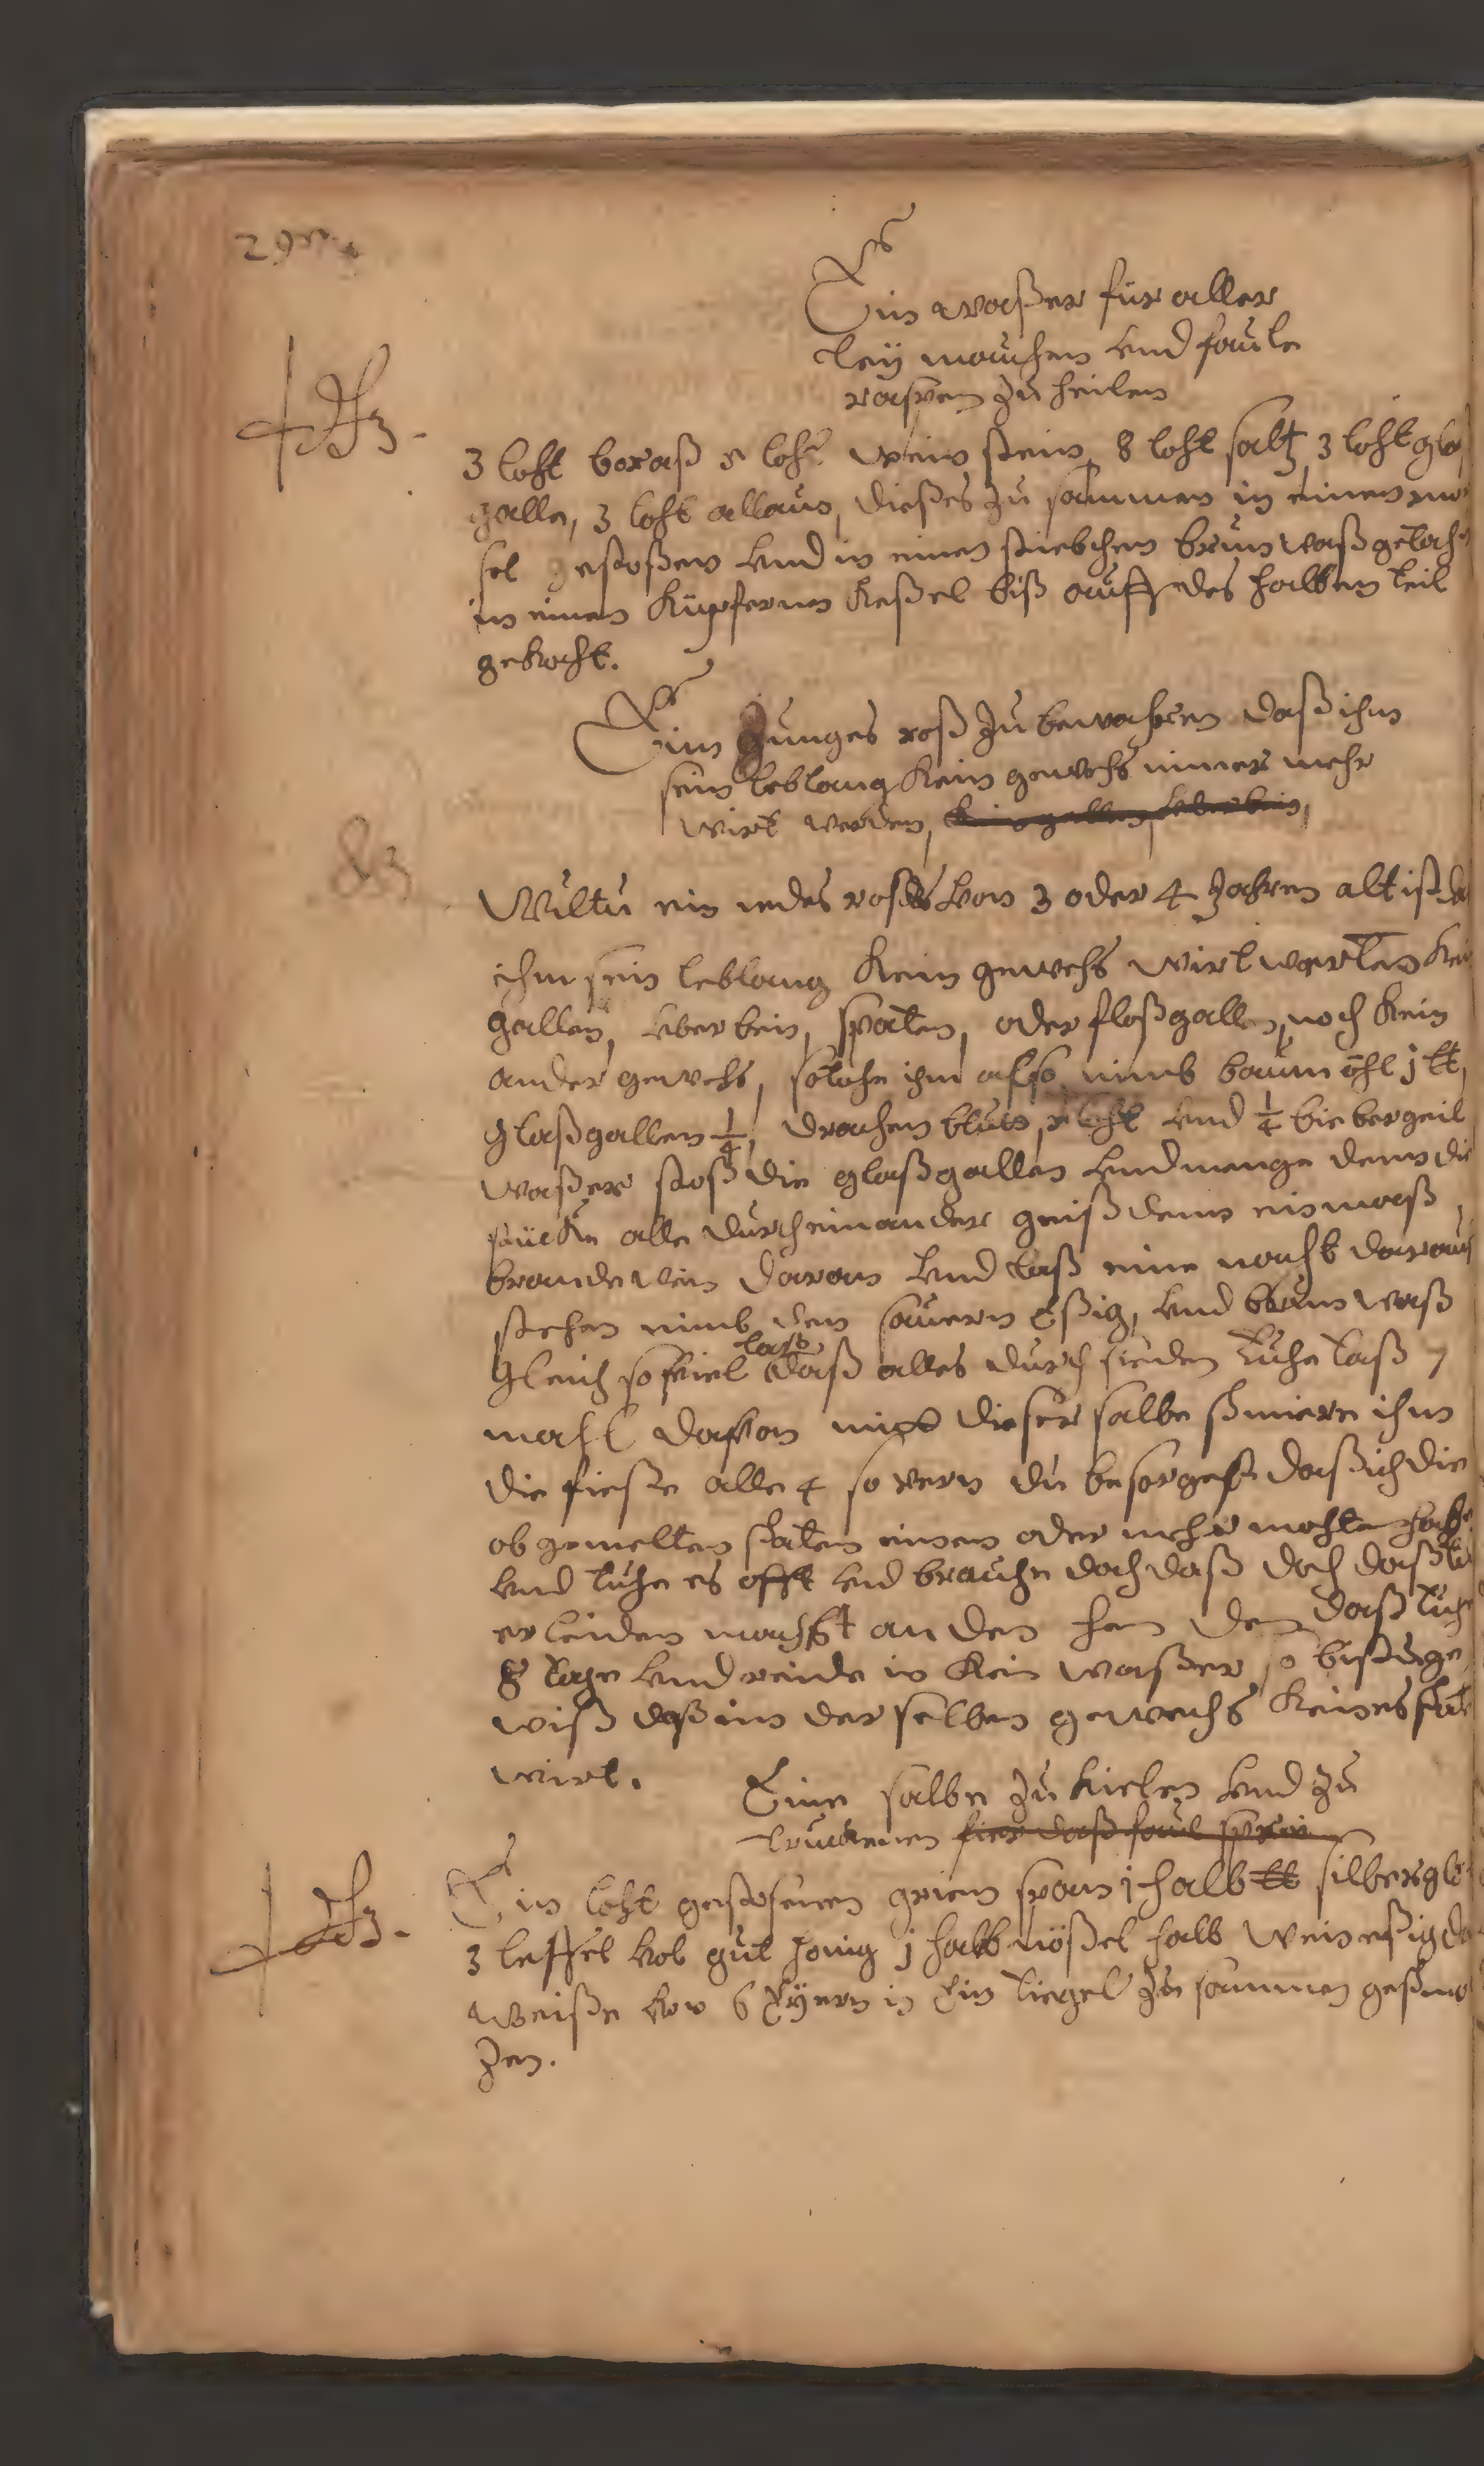 Ein waßer für aller
leÿ mauchen vnd faule
raspen zu heilen
3 loht boraß loht wein stein 8 loht saltz 3 loht glaß
galle, 3 loht allaun, dießes zu sammen in einen mor
sel gestoßen vnd in einen stiebchen brun waß gekoch
in einen Küpfernen Keßel biß auff des halben teil
gekocht.
Ein Junges roß zu bewahren daß ihm
sein leblang Kein gewechs nimer mehr
wirt werden,
Wiltu ein iedes roß das von 3 oder 4 Jahren alt ist
ihm sein leblang Kein gewechs wirt warten Kein
gallen, vberbein, spaten, oder floßgallen, noch Kein
ander gewechs, so tuhe ihm also nimb baum öhl j ℔,
glaßgallen ¼, drachen bluts, loht vnd ¼ biebergeil
waßer stoß die glaßgallen vnd menge dem die
stücke alle durch einander geiß dem ein maß
brandewein daran vnd laß eine nacht darauf
stehen nimb den sauern Eßig, vnd brun waß
gleich so fiel laß daß alles durch sieden tuhe laß 7
mahl dafon mit dieser salbe shmiere ihm
die fieße alle 4 so vern du besorgest daß ich die
ob gemelten shaten einen oder mehr mohte habe
vnd tuhe es offt vnd brauche doch daß doch daß
er leiden mach an den daß tuhe
8 tage vnd reide in Kein waßer so bistu ge
wiß daß im der selben gewechs Keines
wirt.
Eine salbe zu kielen vnd zu
truckenen fier daß faul
Ein loht gestosenen grien span j halb ℔ silberglet
3 leffel vol gut honig j halb nößel halb wein eßig daß
weiße von 6 Eÿern in Ein tiegel zu sammen geshmol
zen.